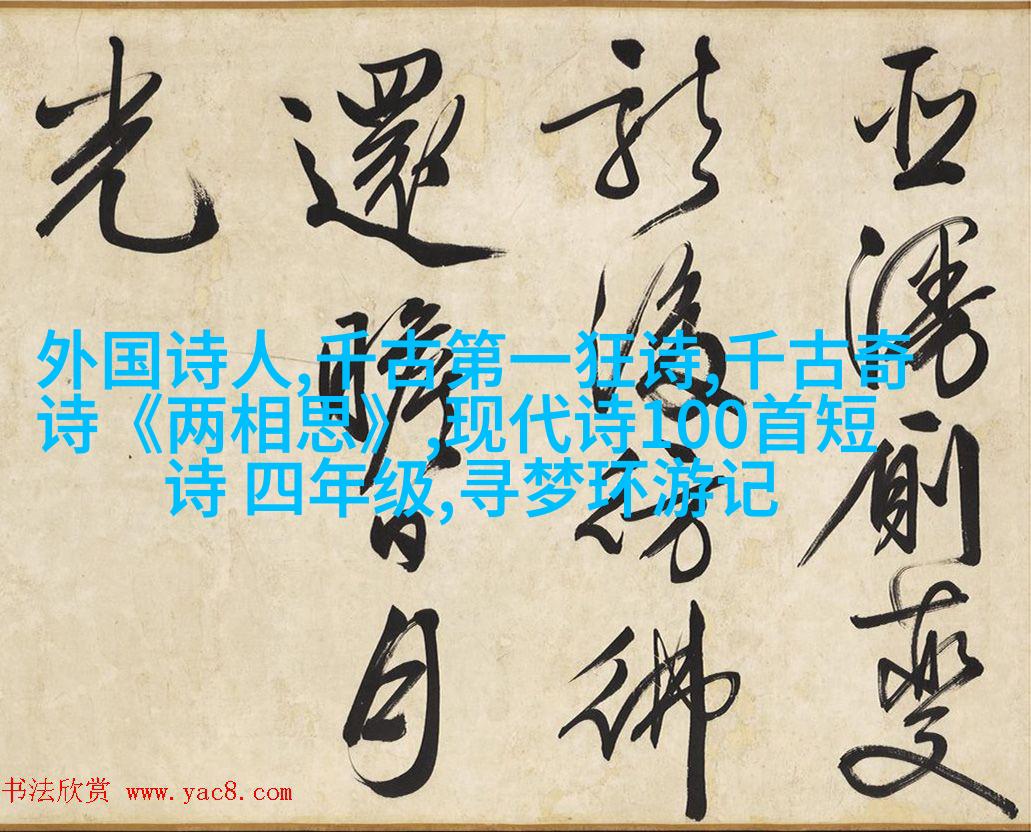 夔
龍後彷彿
還瞻日月
光
外国诗人,千古第一狂诗,千古奇
诗《两相思》,现代诗100首短
诗 四年级,寻梦环游记
书法欣赏 www.yac8.com